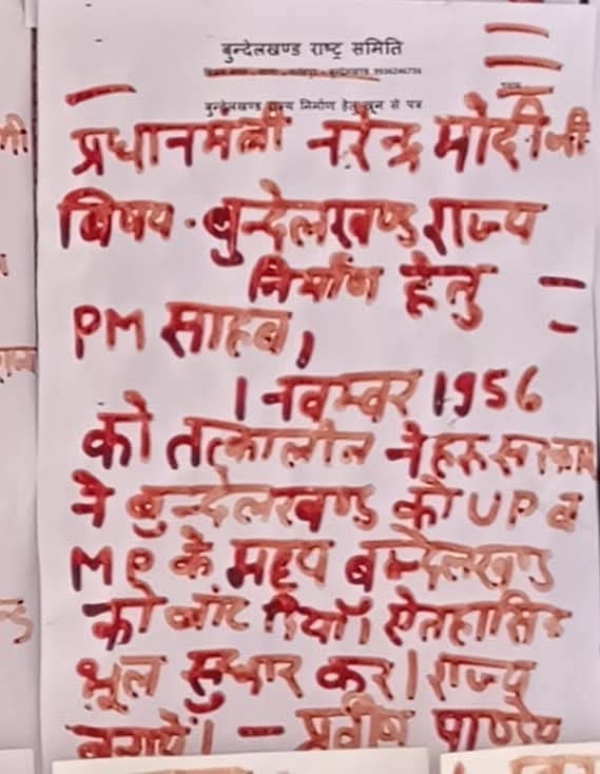 बुन्देलखण्ड राष्ट्र समिति
बुन्देलखण्ड राज्य निर्माण हेतु खून से पत्र
प्रधानमंत्री नरेन्द्र मोदी जी
विषय - बुन्देलखण्ड राज्य
निर्माण हेतु
PM साहब,
1 नवम्बर 1956
को तत्कालीन नेहरू सरकार
ने बुन्देलखण्ड को UP व
MP के मध्य बुन्देलखण्ड
को बांट दिया। ऐतहासिक
भूल सुधार कर। राज्य
बनाये। - प्रवीण पाण्डेय